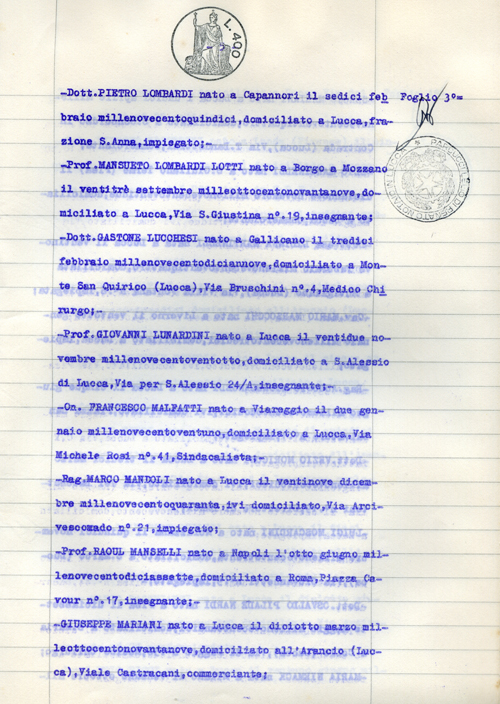 L. 400
-Dott.PIETRO LOMBARDI nato a Capannori il sedici feb Foglio 3°=
braio millenovecentoquindici,domiciliato a Lucca,fra-
zione S.Anna,impiegato;-
-Prof.MANSUETO LOMBARDI LOTTI nato a Borgo a Mozzano
il ventitrè settembre milleottocentonovantanove,do-
miciliato a Lucca,Via S.Giustina n°.19,insegnante;
-Dott.GASTONE LUCCHESI nato a Gallicano il tredici
febbraio millenovecentodiciannove,domiciliato a Mon-
te San Quirico (Lucca),Via Bruschini n°.4,Medico Chi
rurgo;-
-Prof.GIOVANNI LUNARDINI nato a Lucca il ventidue no-
vembre millenovecentoventotto,domiciliato a S.Alessio
di Lucca,Via per S.Alessio 24/A,insegnante;-
-On. FRANCESCO MALFATTI nato a Viareggio il due gen-
naio millenovecentoventuno,domiciliato a Lucca,Via
Michele Rosi n°.41,Sindacalista;-
-Rag.MARCO MANDOLI nato a Lucca il ventinove dicem-
bre millenovecentoquaranta,ivi domiciliato,Via Arci-
vescovado n°.21,impiegato;
-Prof.RAOUL MANSELLI nato a Napoli l'otto giugno mil-
lenovecentodiciassette,domiciliato a Roma,Piazza Ca-
vour n°.17,insegnante;-
-GIUSEPPE MARIANI nato a Lucca il diciotto marzo mil-
leottocentonovantanove,domiciliato all'Arancio (Luc-
ca),Viale Castracani,commerciante;